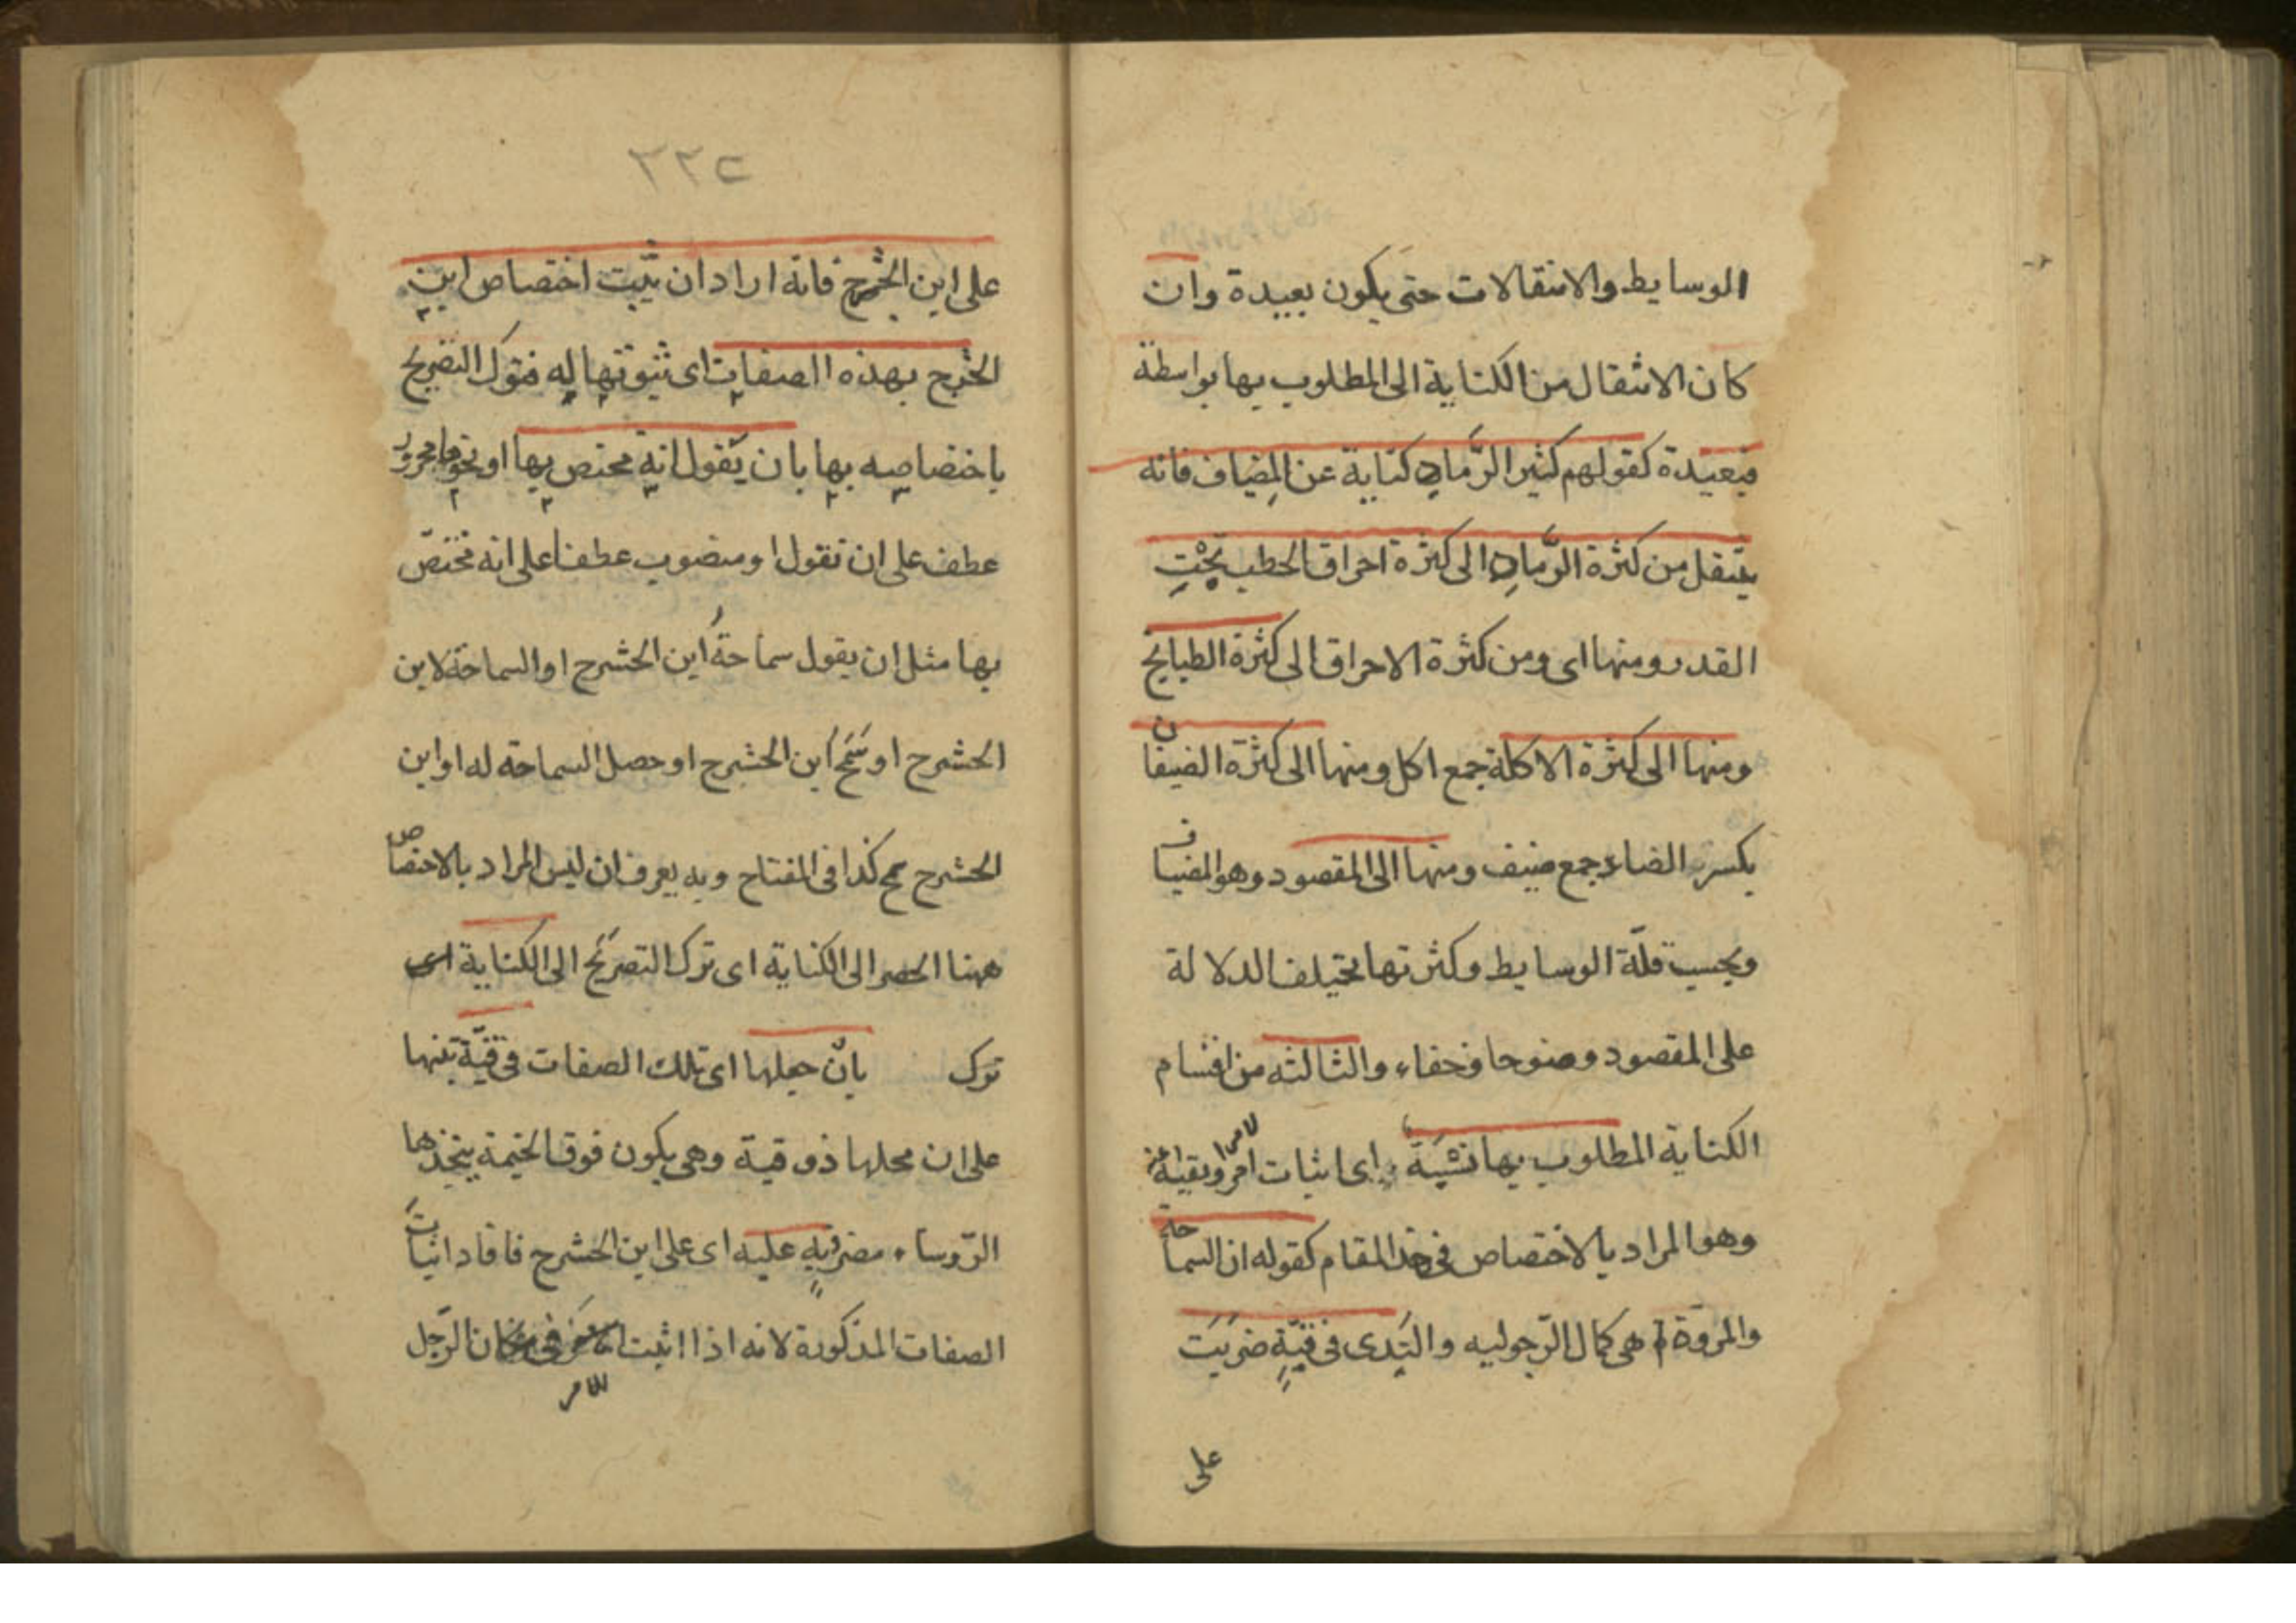 الوسايط والانتقالات حتى يكون بعيدة وان
كان الانتقال من الكناية الى المطلوب بها بواسطة
فبعيدة كقولهم كثير الرَّمادِ كناية عن المِضياف فانه
ينتقل من كثرة الرَّمادِ الى كثرة احراق الحطب تحْتِ
القدر ومنها اى ومن كثرة الاحراق الى كثرة الطبايخ
ومنها الى كثرة الاكلة جمع اكل ومنها الى كثرة الضيفان
بكسر الضاد جمع ضيف ومنها الى المقصود وهو المضياف
وبحسب قلّة الوسايط وكثرتها تختلف الدلالة
على المقصود وضوحا وخفاء والثالثه من اقسام
الكناية المطلوب بها نسْبَة اى اثبات امر لامر او نفيه عنه
وهو المراد بالاختصاص فى هذا المقام كقوله ان السماحة
والمروّة هى كمال الرّجوليه والنَدى فى قبّةٍ ضربَت
على
٢٢٢
على ابن الحشرج فانه اراد ان يثبت اختصاص ابن
الحشرج بهذه الصفات اى ثبوتها له فترك التصريح
باختصاصه بها بان يقول انه مختص بها او نحوها مجرور
عطف على ان تقول او منصوب عطفا على انه مختصّ
بها مثل ان يقول سماحةُ ابن الحشرج او السماحة لابن
الحشرج او سَمَحَ ابن الحشرج او حصل السماحة له او ابن
الحشرج سمح كذا فى المفتاح وبه يعرف ان ليس المراد بالاختصاص
ههنا الحصر الى الكناية اى ترك التصريح الى الكناية اى
ترك بان جعلها اى تلك الصفات فى قبّة تنبيها
على ان محلها ذو قبة وهى يكون فوق الخيمة يتخذها
الرّوساء مضروبة عليه اى على ابن الحشرج فافاد اثبات
الصفات المذكورة لانه اذا اثبت الامر فى مكان الرّجل